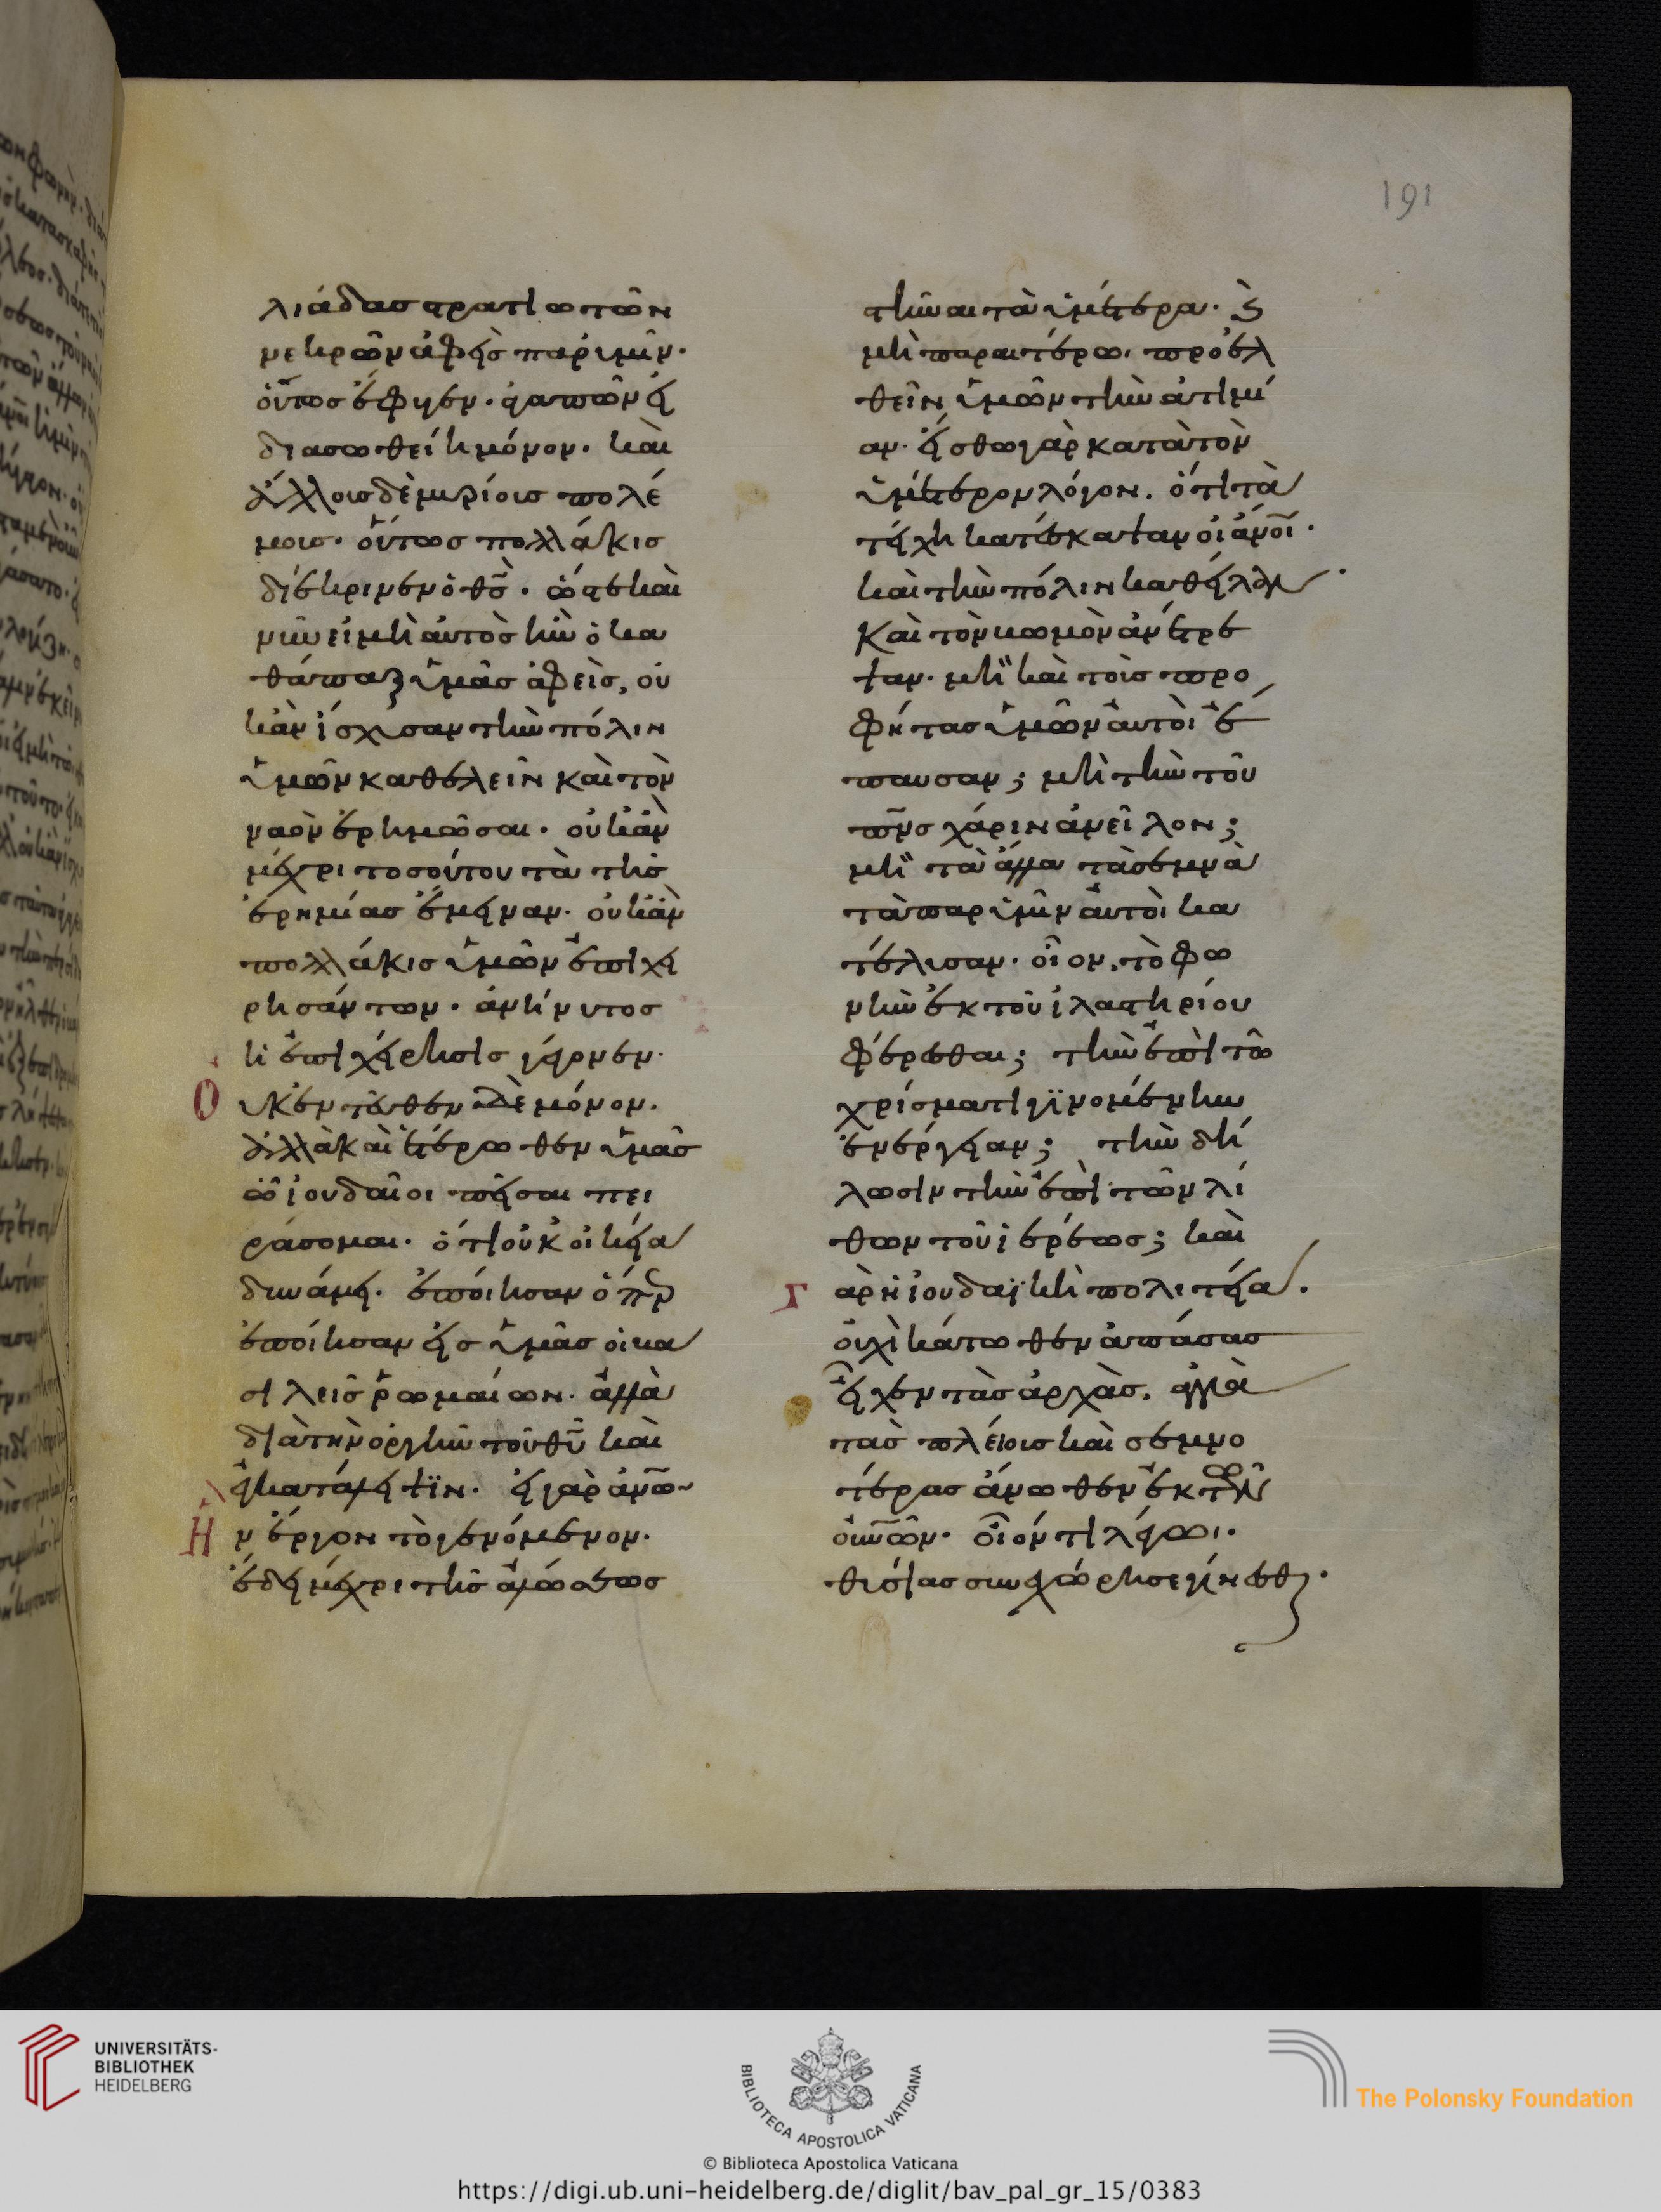 191
λιάδας στρατιωτῶν
νεκρῶν ἀφεὶς παρ' ὑμῖν.
οὗτος ἔφυγεν. ἀγαπῶν εἰ
διασωθείη μόνον. καὶ
ἄλλοις δὲ μυρίοις πολέ
μοις. οὕτως πολλάκις
διέκρινεν ὁ θς. ὥστε καὶ
νῦν εἰ μὴ αὐτὸς ἦν ὁ κα
θάπαξ ὑμᾶς ἀφεὶς, οὐ
κἂν ἴσχυσαν τὴν πόλιν
ὑμῶν καθελεῖν καὶ τὸν
ναὸν ἐρημῶσαι. οὐκ ἂν
μέχρι τοσούτου τὰ τῆς
ἐρημίας ἔμειναν. οὐκ ἂν
πολλάκις ὑμῶν ἐπιχει
ρησάντων. ἀνήνυτος
ἡ ἐπιχείρησις γέγονεν.
Οὐκ ἐντεῦθεν δὲ μόνον.
ἀλλὰ καὶ ἑτέρωθεν ὑμᾶς
ὦ ἰουδαῖοι πεῖσαι πει
ράσομαι. ὅτι οὐκ οἰκεία
δυνάμει. ἐποίησαν ὅπερ
ἐποίησαν εἰς ὑμᾶς οἱ βα
σιλεῖς ῥωμαίων. ἀλλὰ
διὰ τὴν ὀργὴν τοῦ θυ καὶ
ἐγκατάλειψιν. εἰ γὰρ ἀνω
Ην ἔργον τὸ γενόμενον.
ἔδει μέχρι τῆς ἁλώσεως
στῆναι τὰ ὑμέτερα. καὶ
μὴ περαιτέρω προελ
θεῖν ὑμῶν τὴν ἀτιμί
αν. ἔστω γὰρ κατὰ τὸν
ὑμέτερον λόγον. ὅτι τὰ
τείχη κατέσκαψαν οἱ ἀνοι.
καὶ τὴν πόλιν καθεῖλον.
Καὶ τὸν βωμὸν ἀνέτρε
ψαν. μὴ καὶ τοὺς προ
φήτας ὑμῶν αὐτοὶ ἔ
παυσαν; μὴ τὴν τοῦ
πνς χάριν ἀνεῖλον;
μὴ τὰ ἄλλα τὰ σεμνὰ
τὰ παρ' ὑμῖν αὐτοὶ κα
τέλυσαν. οἷον, τὸ φω
νὴν ἐκ τοῦ ἱλαστηρίου
φέρεσθαι; τὴν ἐπὶ τῶ
χρίσματι γινομένην
ἐνέργειαν; τὴν δή
λωσιν τὴν ἐπὶ τῶν λί
θων τοῦ ἱερέως; καὶ
Γὰρ ἡ ἰουδαϊκὴ πολιτεία.
οὐχὶ κάτωθεν ἁπάσας
εἶχεν τὰς ἀρχὰς. ἀλλὰ
τὰς πλείους καὶ σεμνο
τέρας ἄνωθεν ἐκ τῶν
οὐνῶν. οἷόν τι λέγω.
θυσίας συνεχώρησε γίνεσθαι.
UNIVERSITÄTS-
BIBLIOTHEK
HEIDELBERG
BIBLIOTECA APOSTOLICA VATICANA
The Polonsky Foundation
© Biblioteca Apostolica Vaticana
https://digi.ub.uni-heidelberg.de/diglit/bav_pal_gr_15/0383